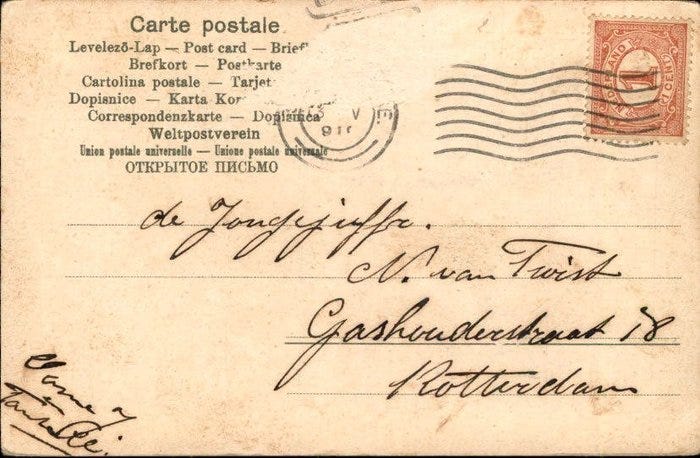 Carte postale
Levelező-Lap — Post card — Brief
Brefkort — Postkarte
Cartolina postale — Tarjet
Dopisnice — Karta Kor
Correspondenzkarte — Dopisnica
Weltpostverein
Union postale universelle — Unione postale universale
ОТКРЫТОЕ ПИСЬМО
1
de Jongejuffr.
N. van Twist
Gashouderstraat 18
Rotterdam